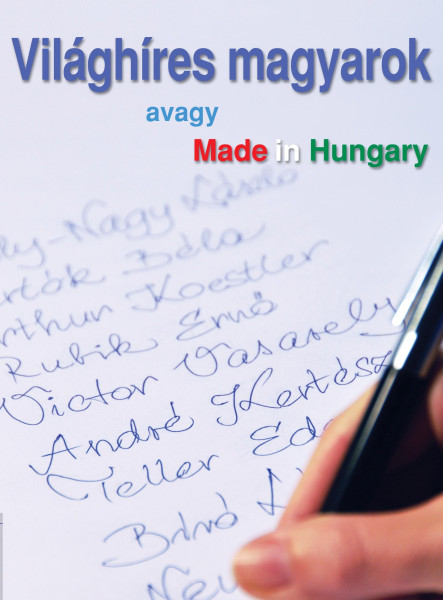 Világhíres magyarok
avagy
Made in Hungary
ly-Nagy László
rtók Béla
rthur Koestler
Rubik Ernő
Victor Vasarely
André Kertész
Teller Ede
Bíró L
Neu